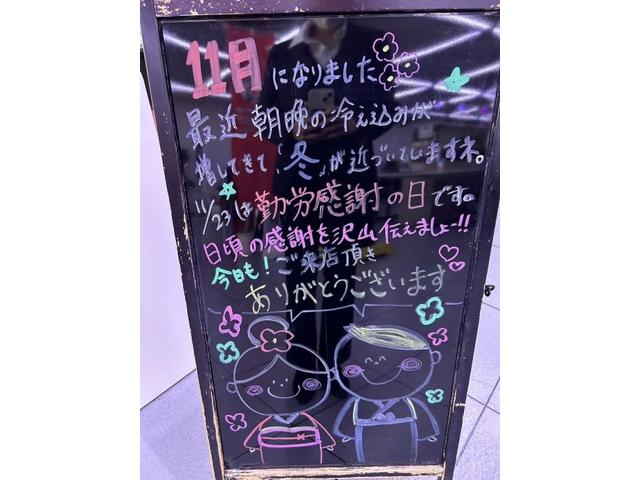 11月になりました
最近朝晩の冷え込みが
増してきて、「冬」が近づいていますネ。
11/23は勤労感謝の日です。
日頃の感謝を沢山伝えましょー!!
今日も!ご来店頂き
ありがとうございます